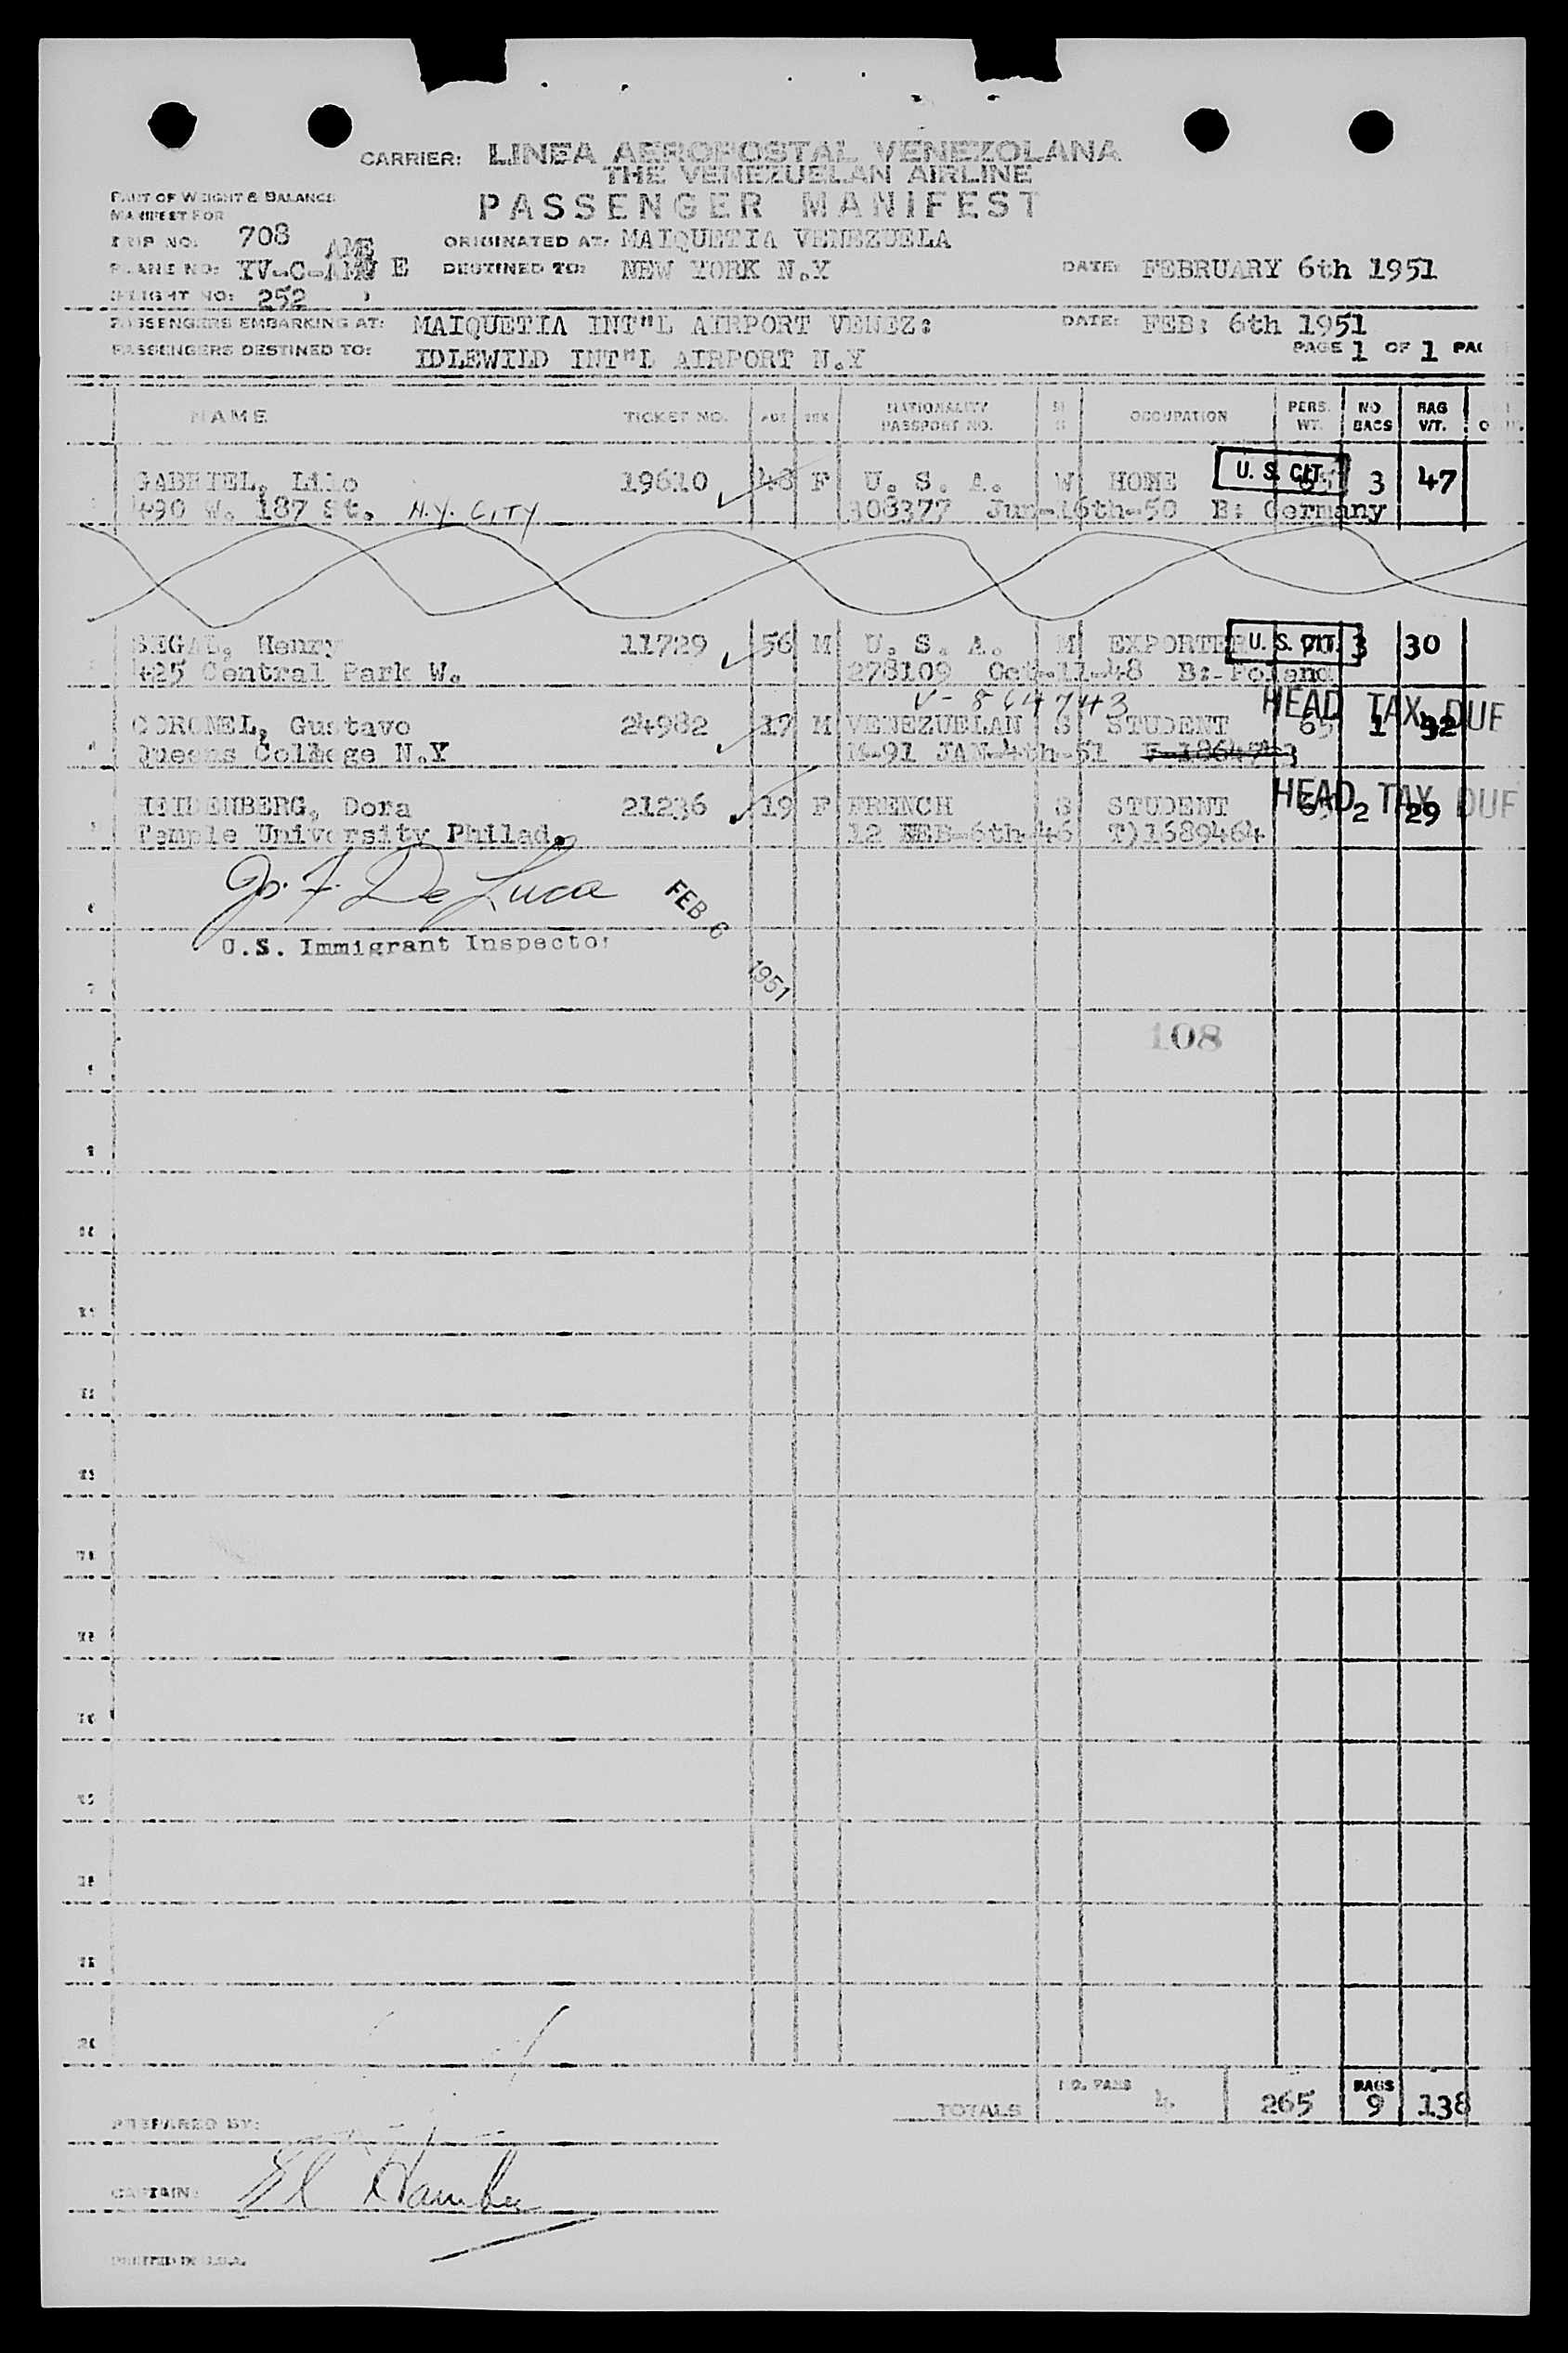 CARRIER: LINEA AEROPOSTAL VENEZOLANA
THE VENEZUELAN AIRLINE
PART OF WEIGHT & BALANCE
MANIFEST FOR
PASSENGER MANIFEST
TRIP NO: 708 ORIGINATED AT: MAIQUETIA VENEZUELA
AME
PLANE NO: YV-C-AMV E DESTINED TO: NEW YORK N.Y DATE: FEBRUARY 6th 1951
FLIGHT NO: 252
PASSENGERS EMBARKING AT: MAIQUETIA INT"L AIRPORT VENEZ: DATE: FEB: 6th 1951
PASSENGERS DESTINED TO: IDLEWILD INT"L AIRPORT N.Y PAGE 1 OF 1 PAG
NAME TICKET NO. AGE SEX NATIONALITY PASSPORT NO. OCCUPATION PERS. WT. NO BAGS BAG WT.
GABRIEL, Lilo 19610 48 F U. S. A. W HOME U. S. CIT. 3 47
490 W. 187 St. N.Y. CITY 308377 Jun-16th-50 B: Germany
SEGAL, Henry 11729 56 M U. S. A. M EXPORTER U. S. CIT. 3 30
425 Central Park W. 278109 Oct-11-48 B:-Poland
V-864743 HEAD TAX DUE
CORONEL, Gustavo 24982 17 M VENEZUELAN S STUDENT 65 1 32
Queens Collège N.Y M-91 JAN-4th-51
HEIDENBERG, Dora 21236 19 F FRENCH S STUDENT HEAD TAX DUE 2 29
Temple University Philad. 12 FEB-6th-46 T)1689464
Jo. F. De Luca FEB 6 1951
U.S. Immigrant Inspector
6
7
108
8
9
10
11
12
13
14
15
16
17
18
19
20
TOTALS NO. PASS 4 265 BAGS 9 138
PREPARED BY:
CAPTAIN:
PRINTED IN U.S.A.